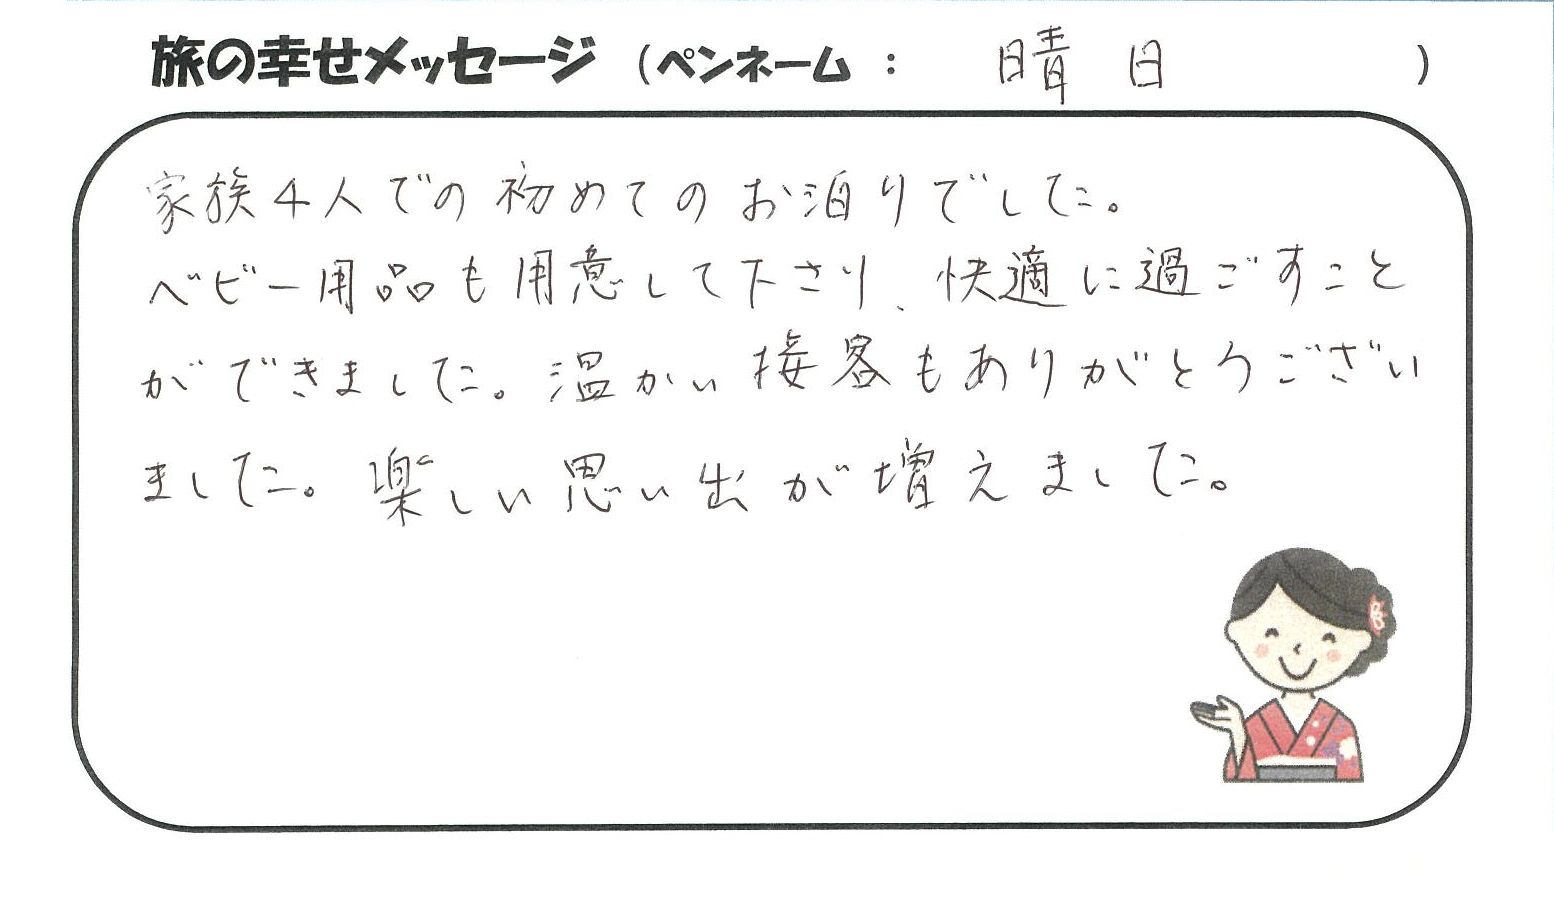 旅の幸せメッセージ (ペンネーム : 晴日 )
家族4人での初めてのお泊りでした。
ベビー用品も用意して下さり、快適に過ごすこと
ができました。温かい接客もありがとうござい
ました。楽しい思い出が増えました。